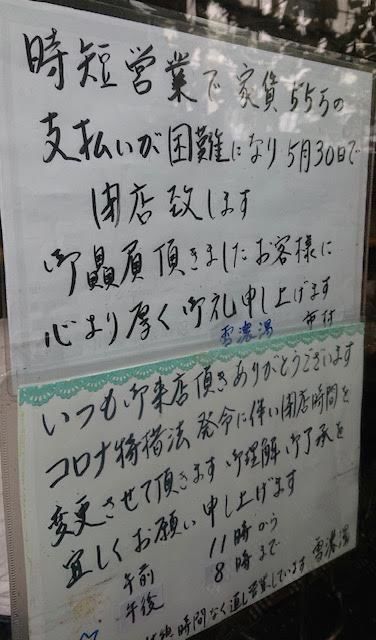 時短営業で家賃555の
支払いが困難になり5月30日で
閉店致します
御贔屓頂きましたお客様に
心より厚く御礼申し上げます
雪濃湯
いつも御来店頂きありがとうございます
コロナ特措法発令に伴い閉店時間を
変更させて頂きます御理解御了承を
宜しくお願い申し上げます
午前 11時から
午後 8時まで
時間なく通し営業しています 雪濃湯